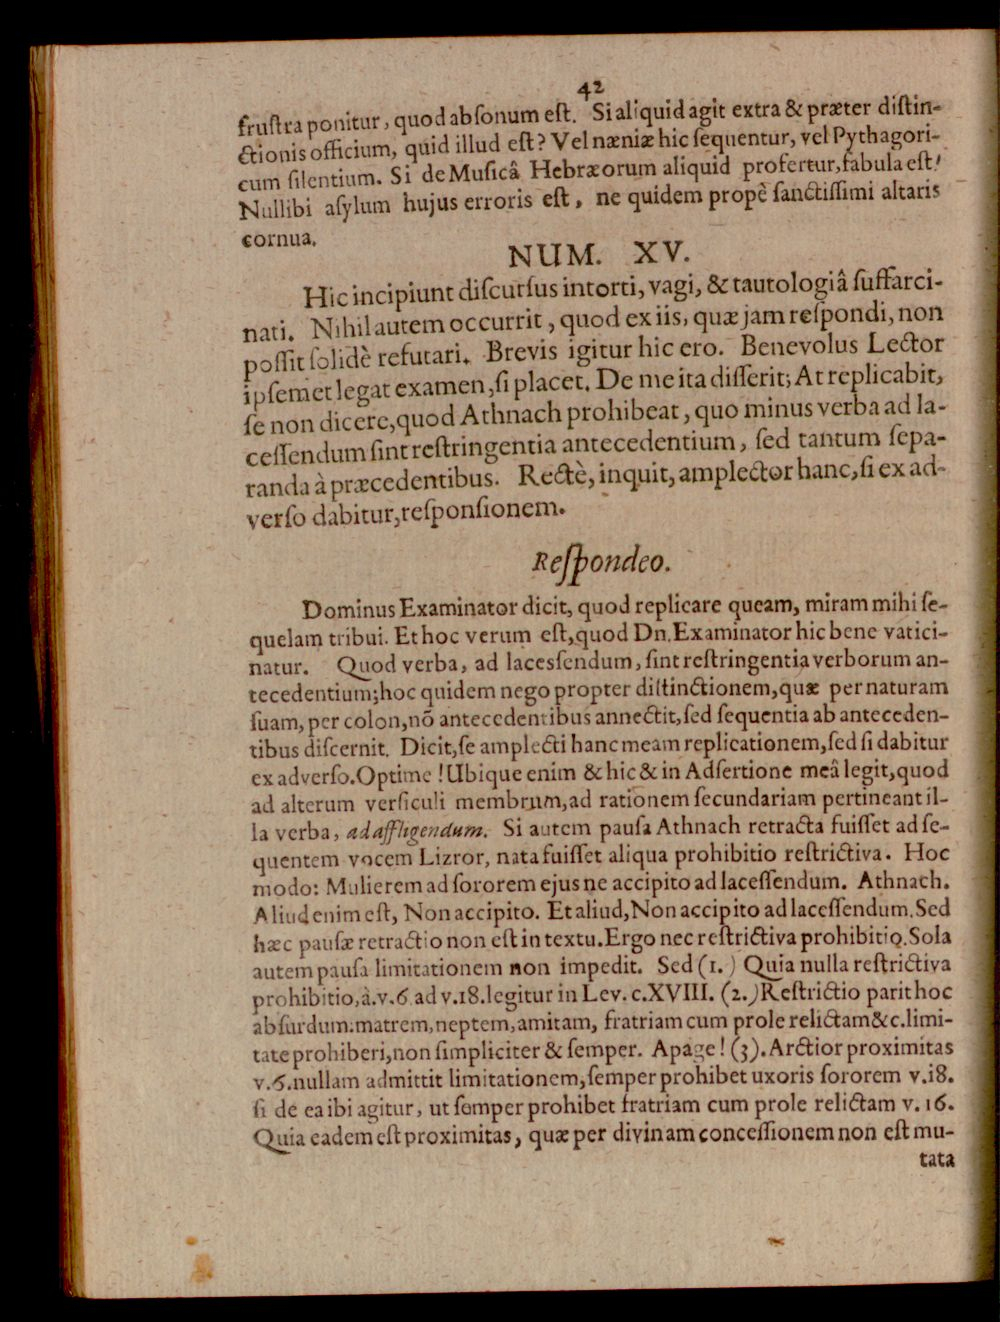 42
fruſtra ponitur, quod abſonum eſt. Si aliquid agit extra & præter diſtin-
ctionis officium, quid illud eſt? Vel næniæ hic ſequentur, vel Pythagori-
cum ſilentium. Si de Muſicâ Hebræorum aliquid profertur, fabula eſt!
Nullibi aſylum hujus erroris eſt, ne quidem propè ſanctiſſimi altaris
cornua.
NUM. XV.
Hic incipiunt diſcurſus intorti, vagi, & tautologiâ ſuffarci-
nati. Nihil autem occurrit, quod ex iis, quæ jam reſpondi, non
poſſit ſolidè refutari. Brevis igitur hic ero. Benevolus Lector
ipſemet legat examen, ſi placet. De me ita diſſerit; At replicabit,
ſe non dicere, quod Athnach prohibeat, quo minus verba ad la-
ceſſendum ſint reſtringentia antecedentium, ſed tantum ſepa-
randa à præcedentibus. Rectè, inquit, amplector hanc, ſi ex ad-
verſo dabitur, reſponſionem.
Reſpondeo.
Dominus Examinator dicit, quod replicare queam, miram mihi ſe-
quelam tribui. Et hoc verum eſt, quod Dn. Examinator hic bene vatici-
natur. Quod verba, ad lacesſendum, ſint reſtringentia verborum an-
tecedentium; hoc quidem nego propter diſtinctionem, quæ per naturam
ſuam, per colon, nõ antecedentibus annectit, ſed ſequentia ab anteceden-
tibus diſcernit. Dicit, ſe amplecti hanc meam replicationem, ſed ſi dabitur
ex adverſo. Optime! Ubique enim & hic & in Adſertione meâ legit, quod
ad alterum verſiculi membrum, ad rationem ſecundariam pertineant il-
la verba, ad affligendum. Si autem pauſa Athnach retracta fuiſſet ad ſe-
quentem vocem Lizror, nata fuiſſet aliqua prohibitio reſtrictiva. Hoc
modo: Mulierem ad ſororem ejus ne accipito ad laceſſendum. Athnach.
Aliud enim eſt, Non accipito. Et aliud, Non accipito ad laceſſendum. Sed
hæc pauſæ retractio non eſt in textu. Ergo nec reſtrictiva prohibitio. Sola
autem pauſa limitationem non impedit. Sed (1.) Quia nulla reſtrictiva
prohibitio, à. v. 6. ad v. 18. legitur in Lev. c. XVIII. (2.) Reſtrictio parit hoc
abſurdum: matrem, neptem, amitam, fratriam cum prole relictam &c. limi-
tate prohiberi, non ſimpliciter & ſemper. Apage! (3). Arctior proximitas
v. 6. nullam admittit limitationem, ſemper prohibet uxoris ſororem v. 18.
ſi de ea ibi agitur, ut ſemper prohibet fratriam cum prole relictam v. 16.
Quia eadem eſt proximitas, quæ per divinam conceſſionem non eſt mu-
tata